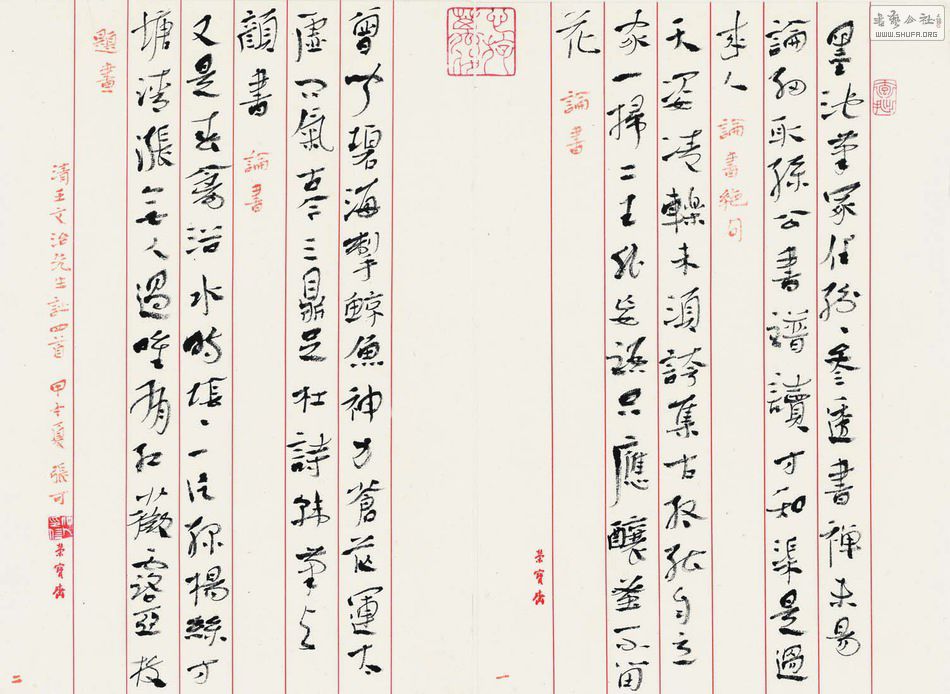 墨池筆冢任紛〻參透書禪未易
論細取孫公書譜讀方知渠是過
來人 論書絕句
天姿凌轢未須誇集古終能自立
家一掃二王非妄語只應釀蜜不留
花 論書
榮寶齋
一
曾聞碧海掣鯨魚神力蒼茫運太
虛間氣古今三鼎足杜詩韓筆與
顏書 論書
又是春禽浴水時悵〻一徑綠楊絲方
塘清漲無人過唯有紅薇露亞枝
題畫
清王文治先生詩四首 甲午夏 張可
榮寶齋
二
書藝公社
WWW.SHUFA.ORG